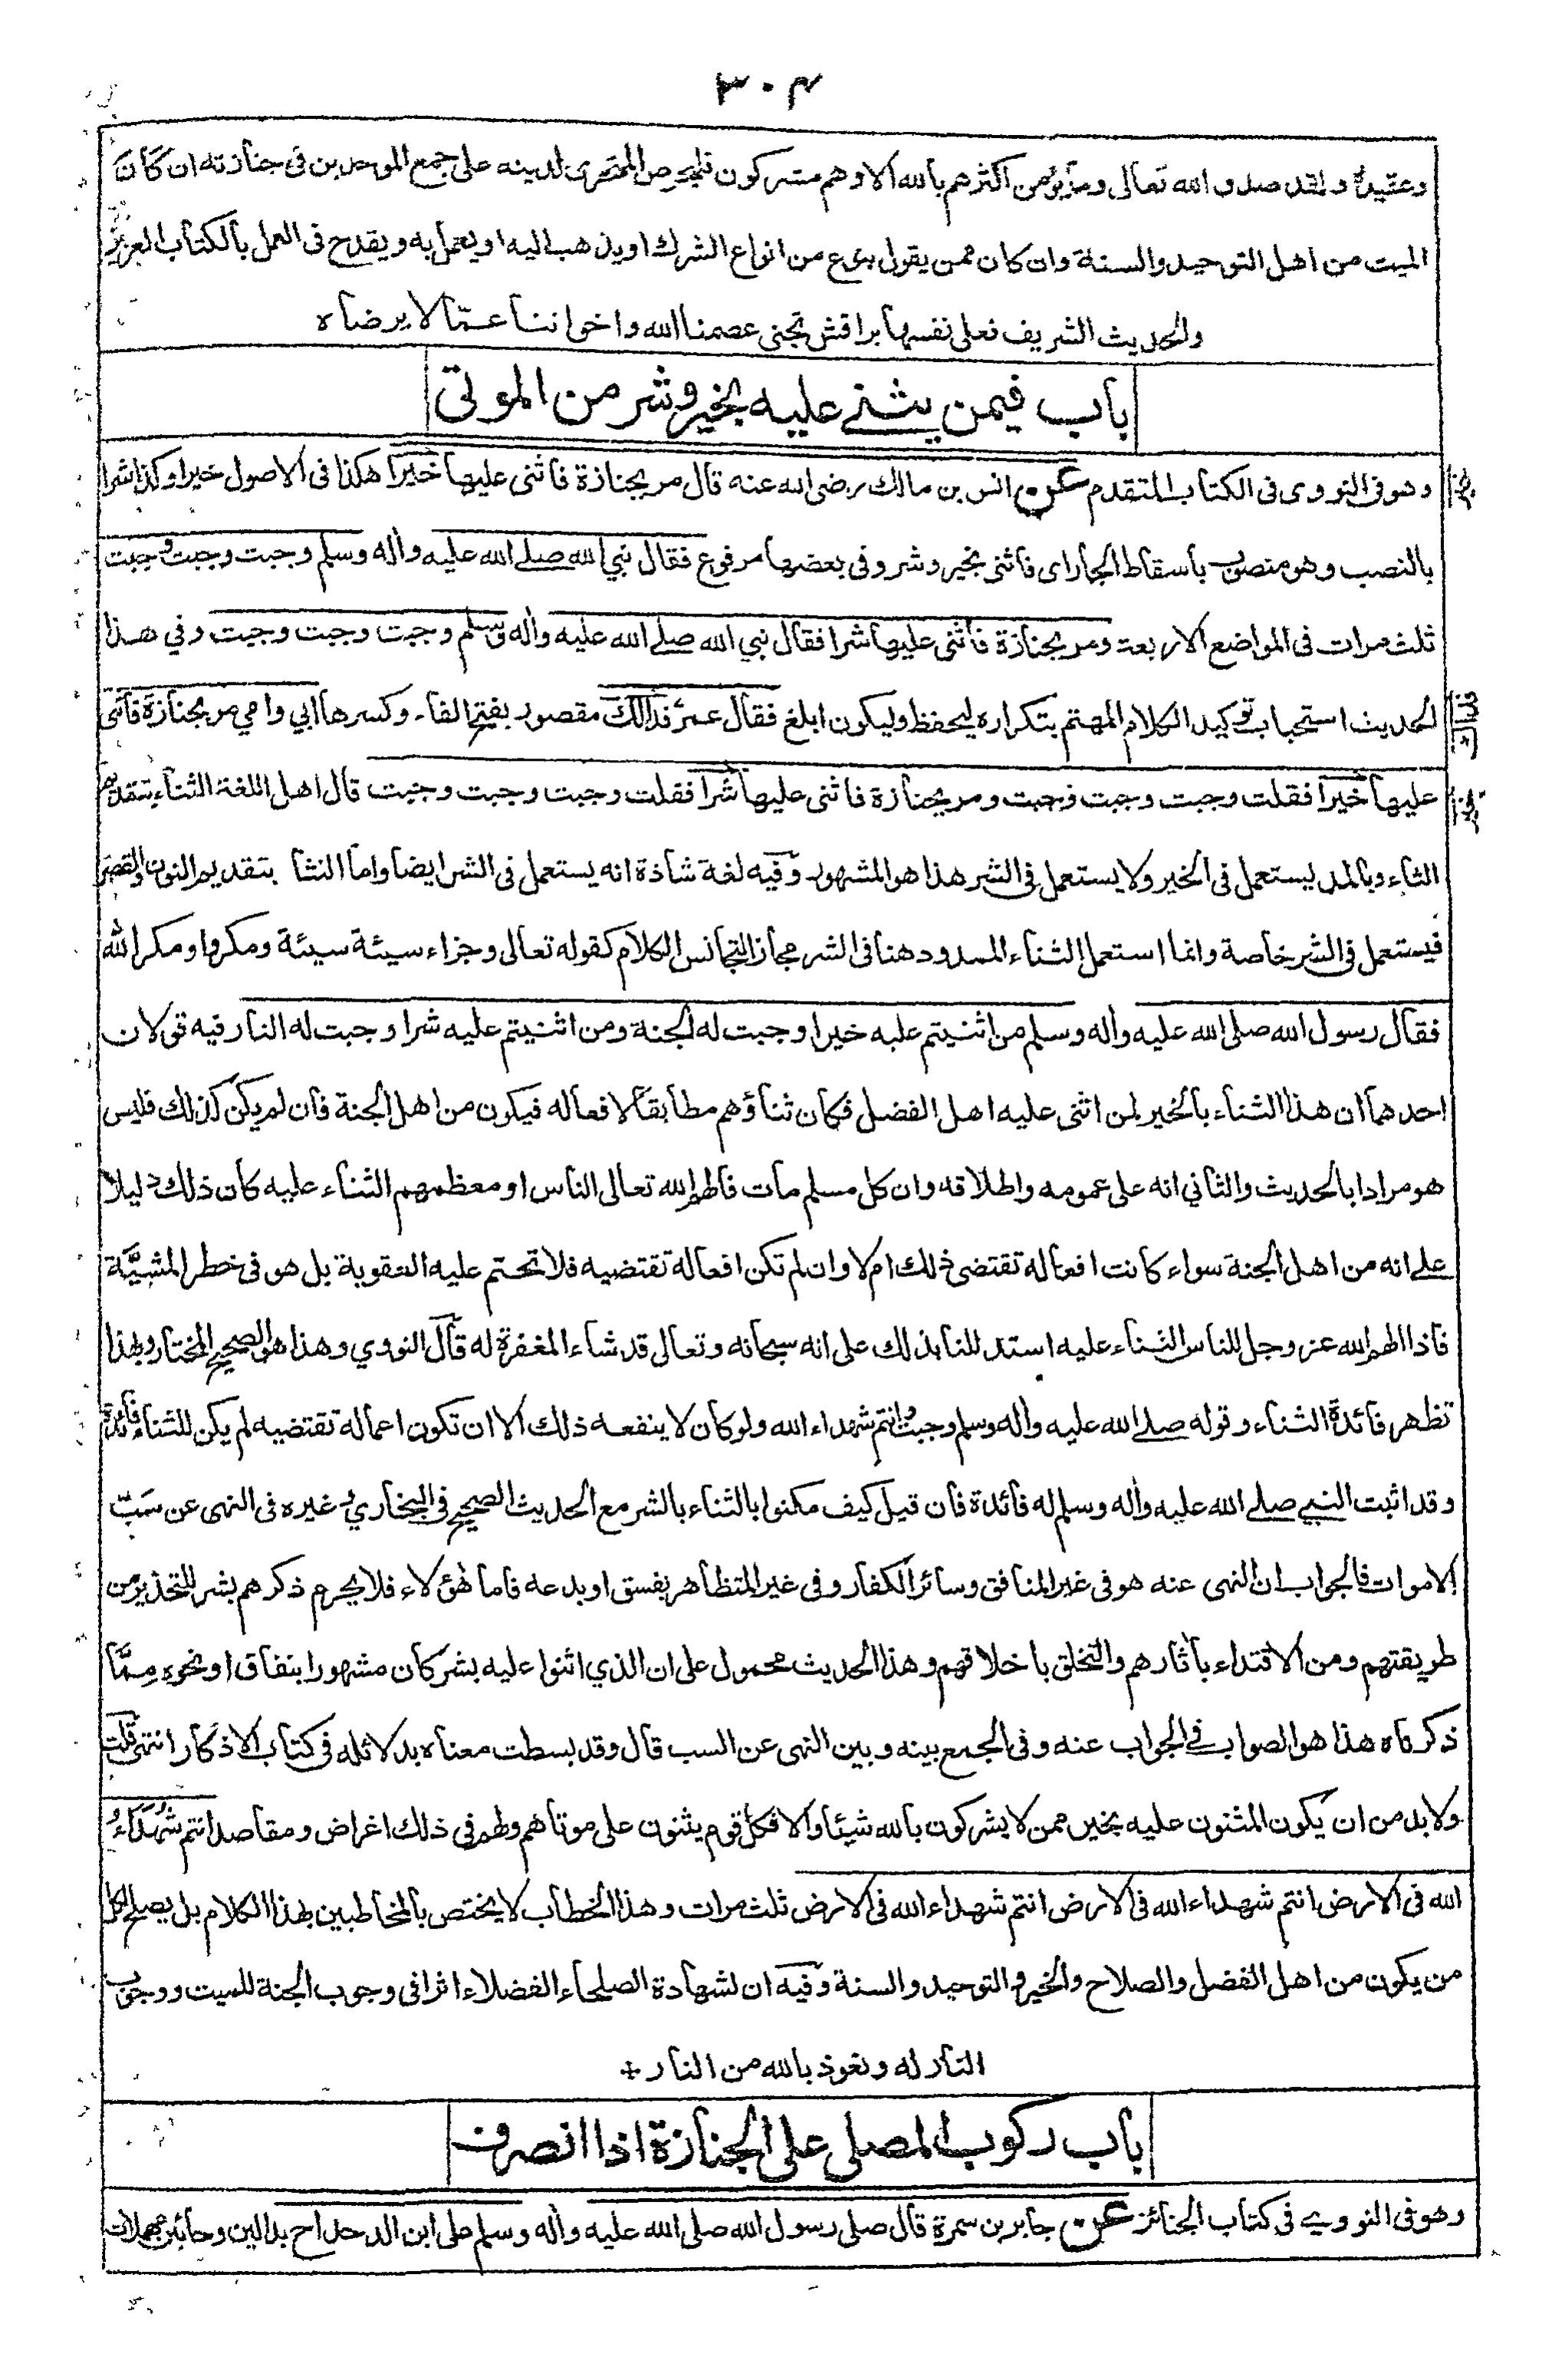 ٣٠٤
وعقيدة ولقد صدق الله تعالى وما يؤمن اكثرهم بالله الا وهم مشركون فليحرص المتحرى لدينه على جمع الموحدين فى جنازته ان كان
الميت من اهل التوحيد والسنة وان كان ممن يقول بنوع من انواع الشرك او يذهب اليه او يعمل به ويقدح فى العمل بالكتاب العزيز
والحديث الشريف فعلى نفسها براقش تجنى عصمنا الله واخواننا عمّا لا يرضاه
باب فيمن يثنے عليه بخير وشر من الموتى
وهو فى النووى فى الكتاب المتقدم عن انس بن مالك رضى الله عنه قال مر بجنازة فاثنى عليها خيرا هكذا فى الاصول خيرا وكذا شرا
خيرٌ
بالنصب وهو منصوب باسقاط الجار اى فاثنى بخير وشر وفى بعضها مرفوع فقال نبي الله صلے الله عليه واله وسلم وجبت وجبت وجبت
ثلث مرات فى المواضع الاربعة ومر بجنازة فاثنى عليها شرا فقال نبي الله صلے الله عليه واله وسلم وجبت وجبت وجبت وفي هذا
الحديث استحباب توكيد الكلام المهتم بتكراره ليحفظ وليكون ابلغ فقال عمر فدالك مقصور بفتح الفاء وكسرها ابي وامي مر بجنازة فاثنى
فداك
عليها خيرا فقلت وجبت وجبت وجبت ومر بجنازة فاثنى عليها شرا فقلت وجبت وجبت وجبت قال اهل اللغة الثناء بتقديم
خير
الثاء وبالمد يستعمل فى الخير ولا يستعمل فى الشر هذا هو المشهور وفيه لغة شاذة انه يستعمل فى الشر ايضا واما النثا بتقديم النون والقصر
فيستعمل فى الشر خاصة وانما استعمل الثناء الممدود هنا فى الشر مجاز التجانس الكلام كقوله تعالى وجزاء سيئة سيئة ومكروا ومكر الله
فقال رسول الله صلى الله عليه واله وسلم من اثنيتم عليه خيرا وجبت له الجنة ومن اثنيتم عليه شرا وجبت له النار فيه قولان
احدهما ان هذا الثناء بالخير لمن اثنى عليه اهل الفضل فكان ثناؤهم مطابقا لافعاله فيكون من اهل الجنة فان لم يكن كذلك فليس
هو مرادا بالحديث والثاني انه على عمومه واطلاقه وان كل مسلم مات فالهم الله تعالى الناس او معظمهم الثناء عليه كان ذلك دليلا
علے انه من اهل الجنة سواء كانت افعاله تقتضى ذلك ام لا وان لم تكن افعاله تقتضيه فلا تحتم عليه العقوبة بل هو فى خطر المشيّة
فاذا الهم الله عز وجل للناس الثناء عليه استدللنا بذلك على انه سبحانه وتعالى قد شاء المغفرة له قال النووي وهذا هو الصحيح المختار وبهذا
تظهر فائدة الثناء وقوله صلے الله عليه واله وسلم وجبت وانتم شهداء الله ولو كان لا ينفعه ذلك الا ان تكون اعماله تقتضيه لم يكن للثناء فائدة
وقد اثبت النبي صلے الله عليه واله وسلم له فائدة فان قيل كيف مكنوا بالثناء بالشر مع الحديث الصحيح فى البخاري وغيره فى النهى عن سَبّ
الاموات فالجواب ان النهى عنه هو فى غير المنافق وسائر الكفار وفى غير المتظاهر بفسق او بدعه فاما هؤلاء فلا يحرم ذكرهم بشر للتحذير من
طريقتهم ومن الاقتداء باثارهم والتخلق باخلاقهم وهذا الحديث محمول على ان الذي اثنوا عليه بشر كان مشهورا بنفاق او نحوه مِمَّا
ذكرناه هذا هو الصواب فے الجواب عنه وفى الجمع بينه وبين النهى عن السب قال وقد بسطت معناه بدلائله فى كتاب الاذكار انتهى قلت
ولابد من ان يكون المثنون عليه بخير ممن لا يشركون بالله شيئا والا فكل قوم يثنون على موتاهم ولهم فى ذلك اغراض ومقاصد انتم شُهَدَاءُ
الله فى الارض انتم شهداء الله فى الارض انتم شهداء الله فى الارض ثلث مرات وهذا الخطاب لا يختص بالمخاطبين بهذا الكلام بل يصلح لكل
من يكون من اهل الفضل والصلاح والخير والتوحيد والسنة وفيه ان لشهادة الصلحاء الفضلاء اثرا فى وجوب الجنة للميت ووجوب
النار له ونعوذ بالله من النار +
باب ركوب المصلى على الجنازة اذا انصرف
وهو فى النووے فى كتاب الجنائز عن جابر بن سمرة قال صلى رسول الله صلى الله عليه واله وسلم على ابن الدحداح بدالين وحائين مهملات